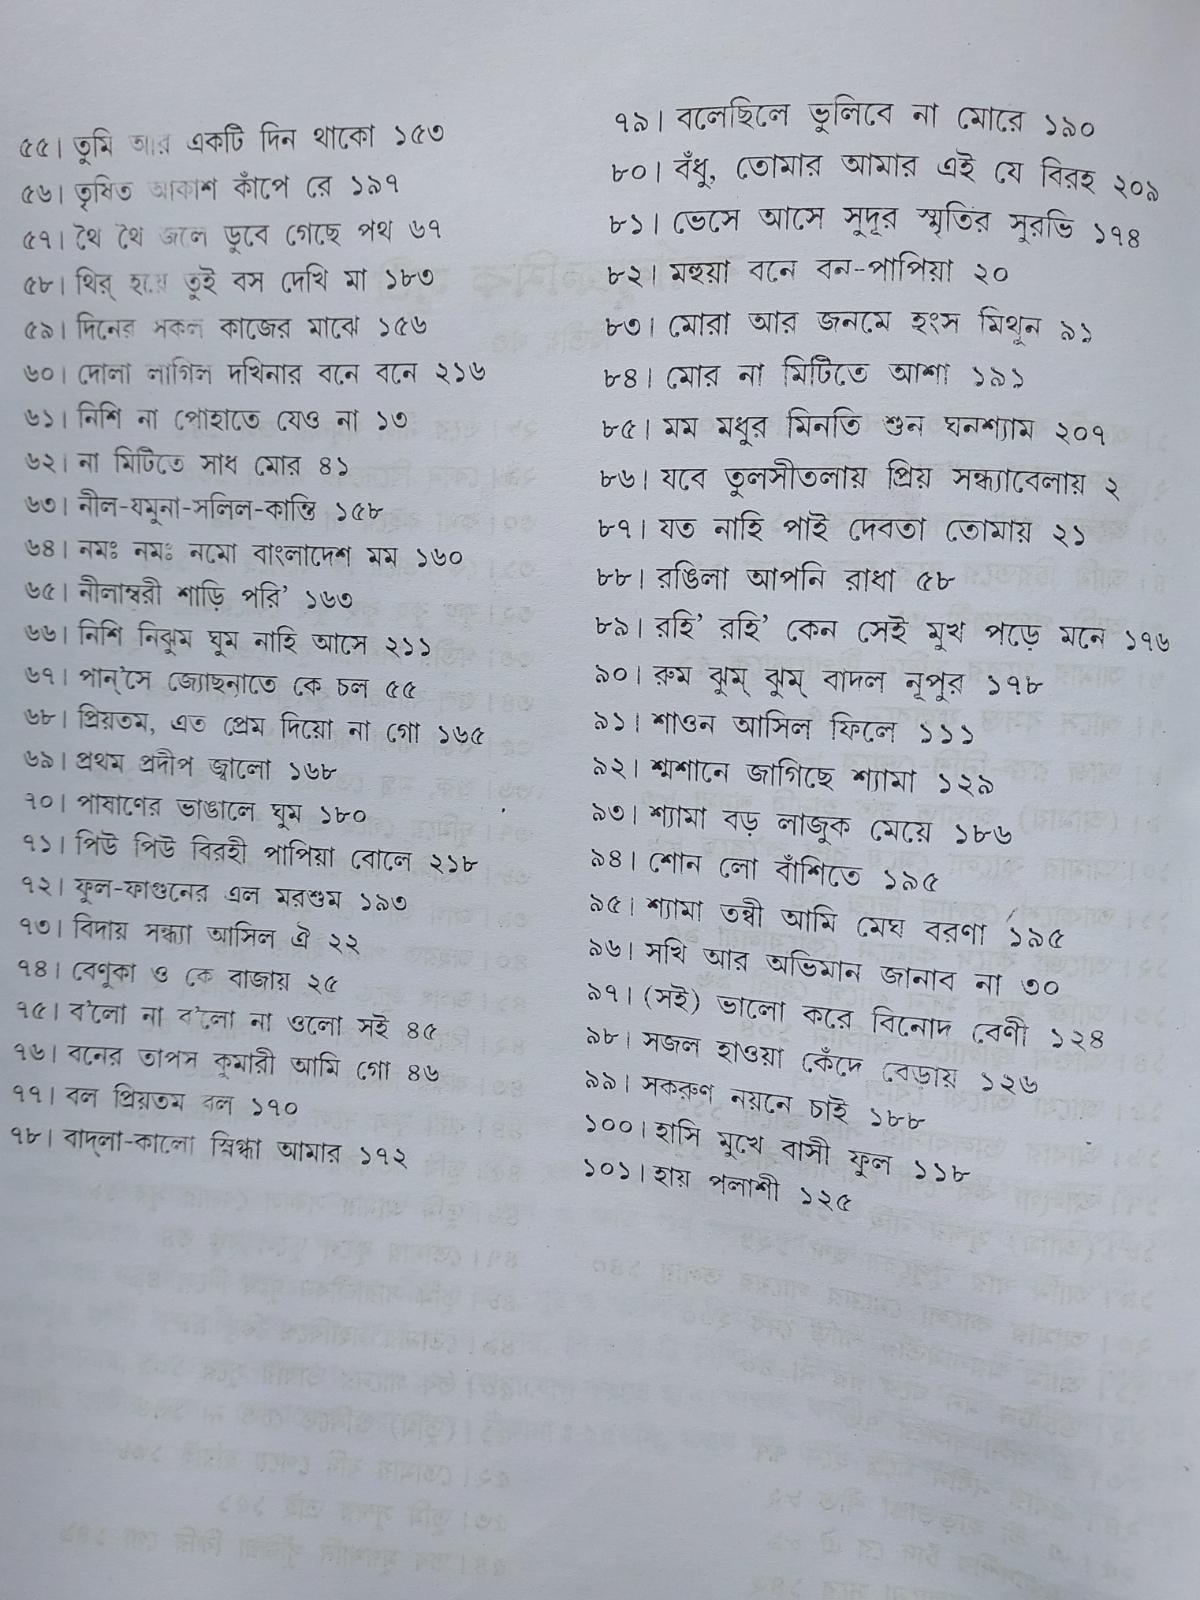 ৫৫। তুমি আর একটি দিন থাকো ১৫৩
৫৬। তৃষিত আকাশ কাঁপে রে ১৯৭
৫৭। থৈ থৈ জলে ডুবে গেছে পথ ৬৭
৫৮। থির্ হয়ে তুই বস দেখি মা ১৮৩
৫৯। দিনের সকল কাজের মাঝে ১৫৬
৬০। দোলা লাগিল দখিনার বনে বনে ২১৬
৬১। নিশি না পোহাতে যেও না ১৩
৬২। না মিটিতে সাধ মোর ৪১
৬৩। নীল-যমুনা-সলিল-কান্তি ১৫৮
৬৪। নমঃ নমঃ নমো বাংলাদেশ মম ১৬০
৬৫। নীলাম্বরী শাড়ি পরি’ ১৬৩
৬৬। নিশি নিঝুম ঘুম নাহি আসে ২১১
৬৭। পান্‌সে জ্যোছনাতে কে চল ৫৫
৬৮। প্রিয়তম, এত প্রেম দিয়ো না গো ১৬৫
৬৯। প্রথম প্রদীপ জ্বালো ১৬৮
৭০। পাষাণের ভাঙালে ঘুম ১৮০
৭১। পিউ পিউ বিরহী পাপিয়া বোলে ২১৮
৭২। ফুল-ফাগুনের এল মরশুম ১৯৩
৭৩। বিদায় সন্ধ্যা আসিল ঐ ২২
৭৪। বেণুকা ও কে বাজায় ২৫
৭৫। ব’লো না ব’লো না ওলো সই ৪৫
৭৬। বনের তাপস কুমারী আমি গো ৪৬
৭৭। বল প্রিয়তম বল ১৭০
৭৮। বাদ্‌লা-কালো স্নিগ্ধা আমার ১৭২
৭৯। বলেছিলে ভুলিবে না মোরে ১৯০
৮০। বঁধু, তোমার আমার এই যে বিরহ ২০৯
৮১। ভেসে আসে সুদূর স্মৃতির সুরভি ১৭৪
৮২। মহুয়া বনে বন-পাপিয়া ২০
৮৩। মোরা আর জনমে হংস মিথুন ৯১
৮৪। মোর না মিটিতে আশা ১৯১
৮৫। মম মধুর মিনতি শুন ঘনশ্যাম ২০৭
৮৬। যবে তুলসীতলায় প্রিয় সন্ধ্যাবেলায় ২
৮৭। যত নাহি পাই দেবতা তোমায় ২১
৮৮। রঙিলা আপনি রাধা ৫৮
৮৯। রহি’ রহি’ কেন সেই মুখ পড়ে মনে ১৭৬
৯০। রুম ঝুম্ ঝুম্ বাদল নূপুর ১৭৮
৯১। শাওন আসিল ফিলে ১১১
৯২। শ্মশানে জাগিছে শ্যামা ১২৯
৯৩। শ্যামা বড় লাজুক মেয়ে ১৮৬
৯৪। শোন লো বাঁশিতে ১৯৫
৯৫। শ্যামা তন্বী আমি মেঘ বরণা ১৯৫
৯৬। সখি আর অভিমান জানাব না ৩০
৯৭। (সই) ভালো করে বিনোদ বেণী ১২৪
৯৮। সজল হাওয়া কেঁদে বেড়ায় ১২৬
৯৯। সকরুণ নয়নে চাই ১৮৮
১০০। হাসি মুখে বাসী ফুল ১১৮
১০১। হায় পলাশী ১২৫